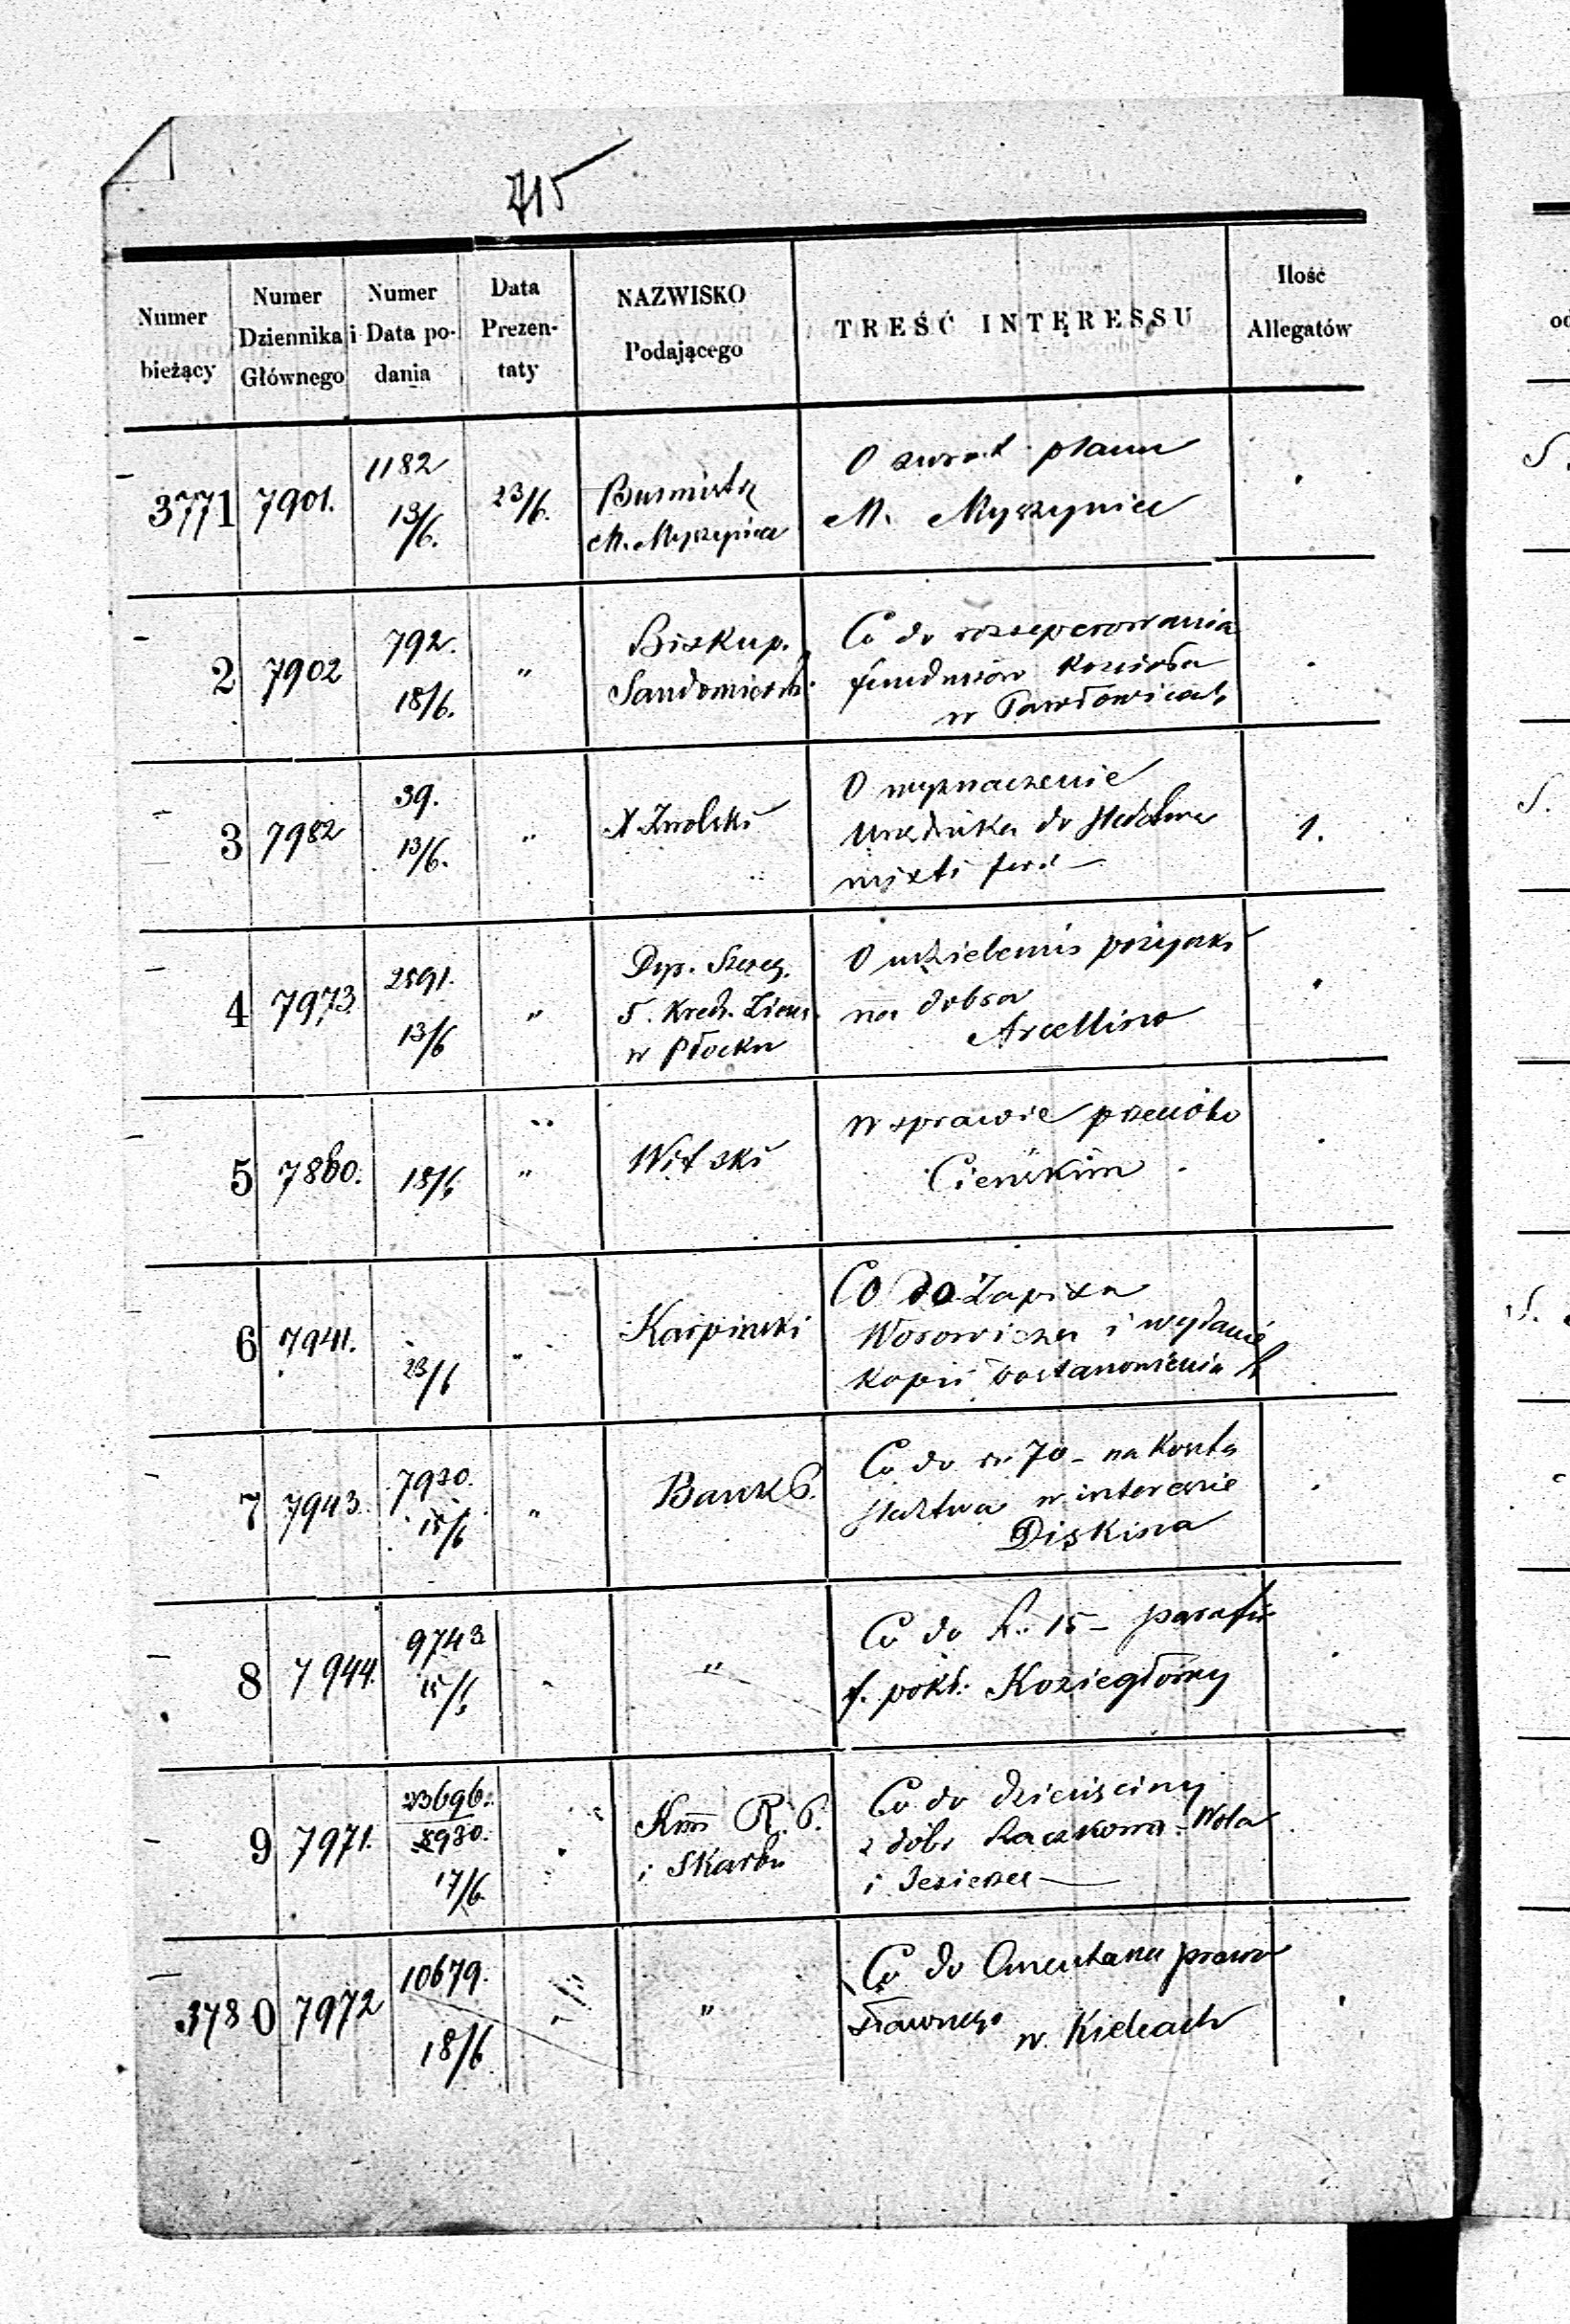 715
Numer bieżący
Numer Dziennika Głównego
Numer i Data podania
Data Prezentaty
NAZWISKO Podającego
TREŚĆ INTERESSU
Ilość Allegatów
3771 7901. 1182 13/6. 23/6. Burmistrz O zwrot planu
M. Myszyniec M. Myszyniec
2 7902 792. 18/6. " Biskup. Co do rozseperowania
Sandomiersk: funduszów Kościoła
w Pawłowicach
3 7982 39. 13/6. " X Znolski O wyznaczenie 1.
Urzędnika do śledztwa
mixti fori
4 7973 2591. 13/6 " Dyr. Szczeg. O udzielenie pożyczki
T. Kred. Ziems. na dobra
w Płocku Arcellino
5 7860. 18/6 " Witski W sprawie przeciwko
Cieńskim
6 7941. 23/6 " Karpinski Co do Zapisu
Worowicza i wydanie
kopii Postanowienia
7 7943. 7930. 15/6 " Bank P. Co do rs. 70 - na koszta
śledztwa w interesie
Diskina
8 7944. 9743 15/6 " " Co do R. 15 - parafii
f. pokl: Koziegłowy
9 7971. 23696. 8930. 17/6 Kom R. P. Co do dziesięciny
i Skarbu z dóbr Raczkowa-Wola
i Jezierza
3780 7972 10679. 18/6 " Co do Cmentarza prawo
sławnego w Kielcach